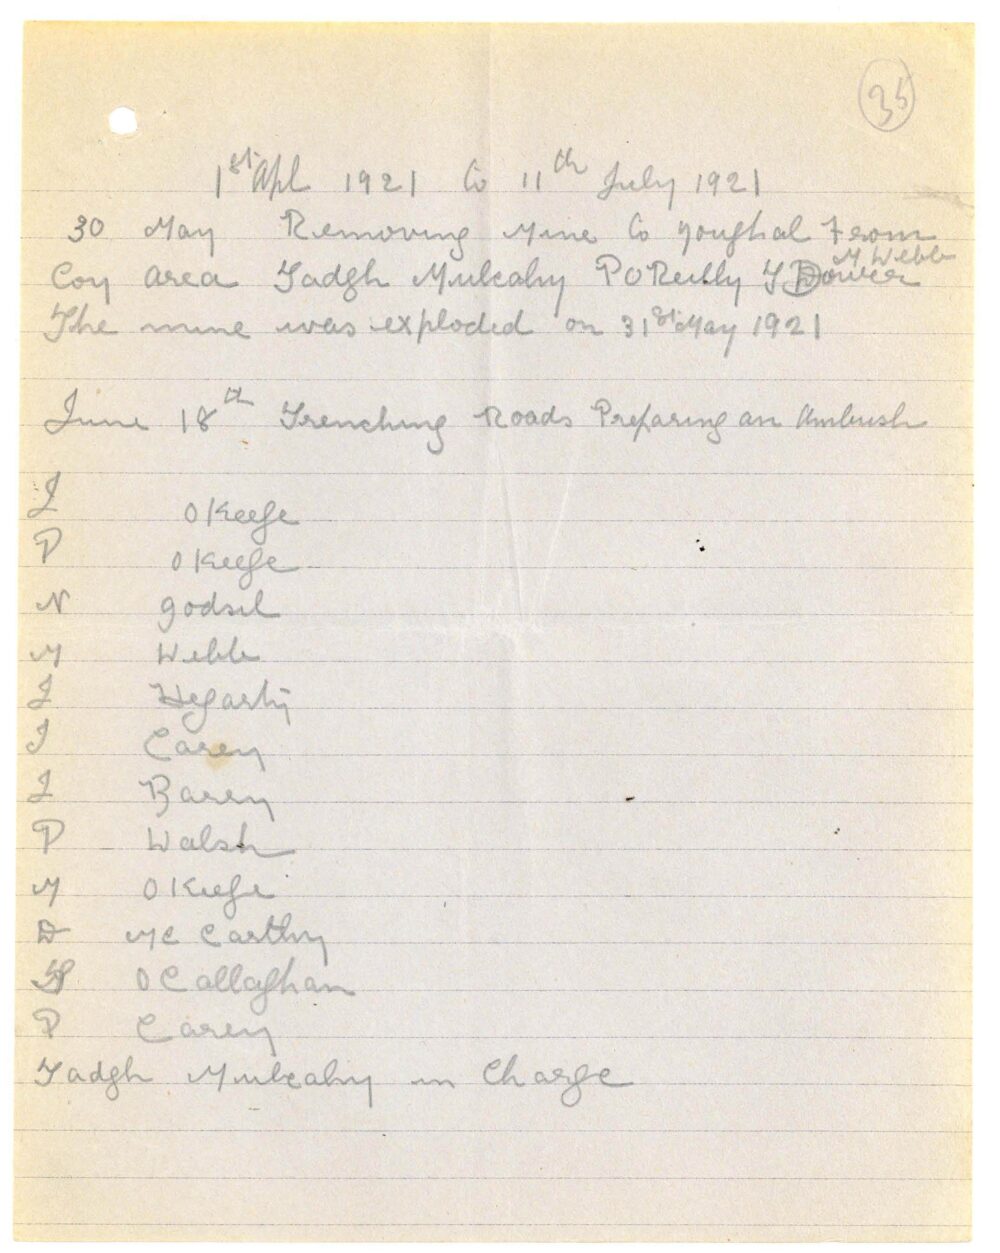 35
1st Apl 1921 to 11th July 1921
30 May Removing Mine to Youghal From
M Webb
Coy area Tadgh Mulcahy P O Reilly T
The mine was exploded on 31st May 1921
June 18th Trenching Roads Preparing an Ambush
J O Keefe
P O Keefe
N Godsil
M Webb
J Hegarty
J Carey
J Barry
P Walsh
M O Keefe
D Mc Carthy
O Callaghan
P Carey
Tadgh Mulcahy in Charge